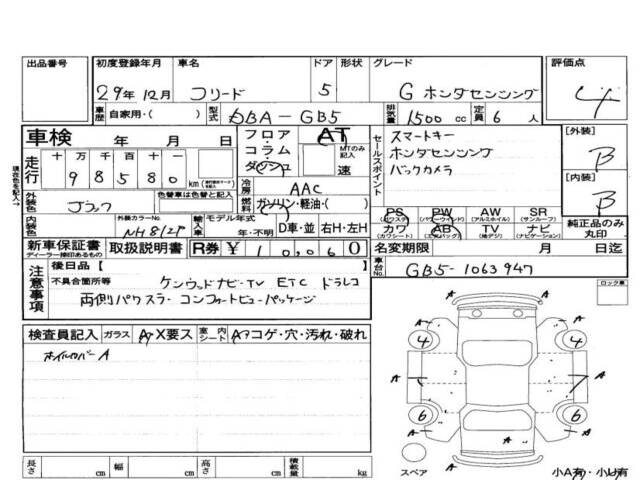 出品番号 初度登録年月 車名 ドア 形状 グレード 評価点
29年12月 フリード 5 G ホンダセンシング 4
車歴 自家用・( ) 型式 DBA-GB5 排気量 1500 cc 定員 6 人
車検 年 月 日
フロア・コラム・ダッシュ AT MTのみ記入 速
セールスポイント
スマートキー
ホンダセンシング
バックカメラ
[外装] B
[内装] B
走行 十 万 千 百 十 一
98580 km
現在色を記入→
外装色 ブラック 色替車は色替と記入
冷房 AAC
燃料 ガソリン・軽油・( )
PS (パワステ) PW (パワーウィンドウ) AW (アルミホイル) SR (サンルーフ)
カワ (カワシート) AB (エアバッグ) TV (地デジ) ナビ (ナビゲーション)
純正品のみ丸印
内装色 外装カラーNo. NH812P 輸入車 モデル年式 年・不明 D車・並 右H・左H
新車保証書 ディーラー捺印あるもの 取扱説明書 R券 ¥ 10,060
名変期限 月 日迄
車台No. GB5-1063947
注意事項 後日品【 】
不具合箇所等 ケンウッドナビ・TV ETC ドラレコ
両側パワスラ・コンフォートビューパッケージ
ロック車
検査員記入 ガラス A・X要ス 室内シート A・コゲ・穴・汚れ・破れ
ホイルカバーA
4 4
A A
A A
6 6
A A
A A
スペア 小A有・小U有
長さ cm 幅 cm 高さ cm 積載量 kg